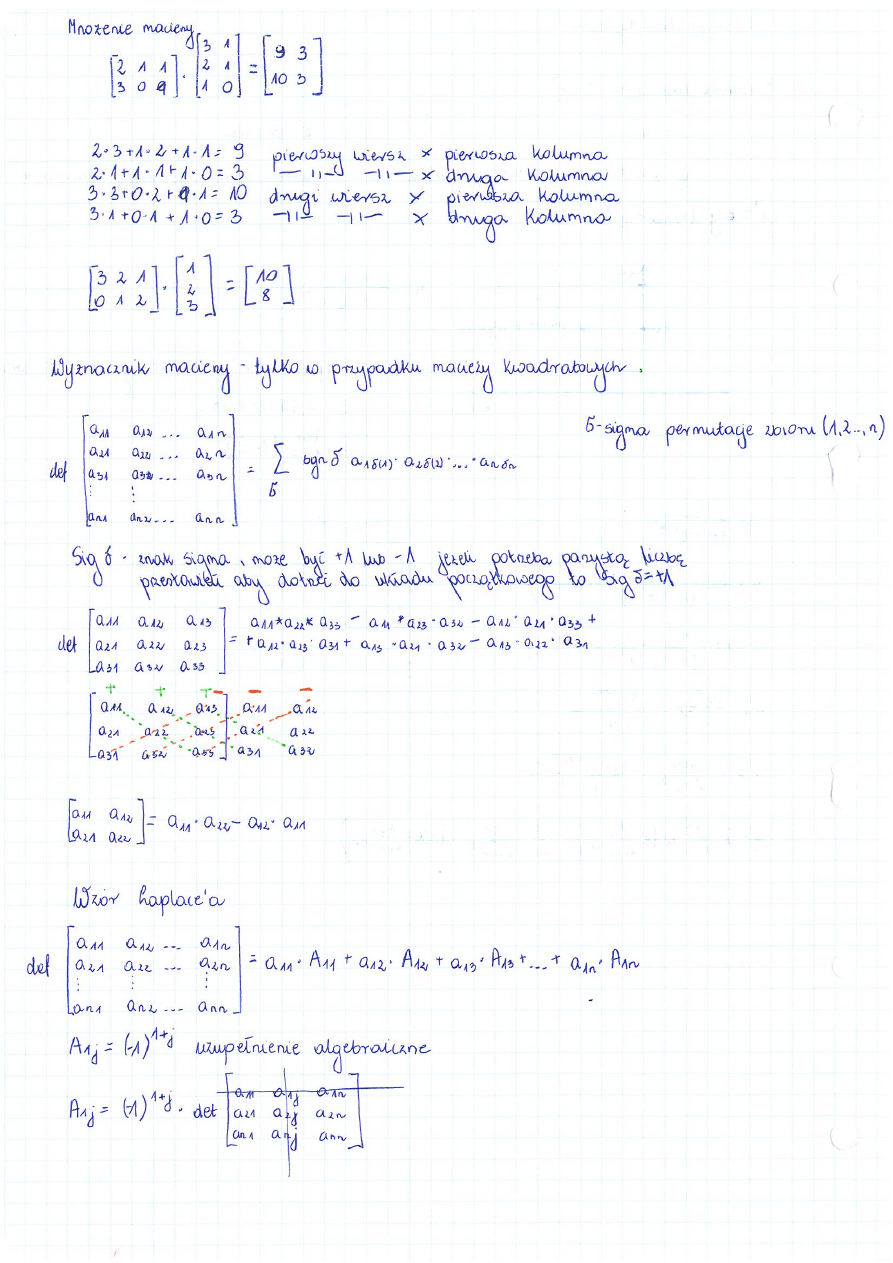 Mnożenie macierzy
[2 1 1; 3 0 1] · [3 1; 2 1; 1 0] = [9 3; 10 3]
2·3+1·2+1·1= 9 pierwszy wiersz × pierwsza kolumna
2·1+1·1+1·0=3 —"— —"— × druga kolumna
3·3+0·2+1·1= 10 drugi wiersz × pierwsza kolumna
3·1+0·1+1·0=3 —"— —"— × druga kolumna
[3 2 1; 0 1 2] · [1; 2; 3] = [10; 8]
Wyznacznik macierzy - tylko w przypadku macieży kwadratowych.
σ-sigma permutacje zbioru (1,2..,n)
det [a11 a12 ... a1n; a21 a22 ... a2n; a31 a32 ... a3n; ⋮ ⋮; an1 an2 ... ann] = Σσ sgn σ a1σ(1) · a2σ(2) · ... · anσn
Sig σ - znak sigma, może być +1 lub -1 jeżeli potrzeba parzystą liczbę
przestawień aby dotrzeć do układu początkowego to sig σ=+1
det [a11 a12 a13; a21 a22 a23; a31 a32 a33] = a11*a22*a33 - a11*a23·a32 - a12·a21·a33 +
+a12·a23·a31 + a13·a21·a32 - a13·a22·a31
+ + + - - -
[a11 a12 a13] a11 a12
a21 a22 a23 a21 a22
a31 a32 a33 a31 a32
[a11 a12; a21 a22] = a11·a22 - a12·a11
Wzór Laplace'a
det [a11 a12 ... a1n; a21 a22 ... a2n; ⋮ ⋮ ⋮; an1 an2 ... ann] = a11·A11 + a12·A12 + a13·A13 + ... + a1n·A1n
A1j = (-1)^1+j uzupełnienie algebraiczne
A1j = (-1)^1+j · det [a11 a1j a1n; a21 a2j a2n; an1 anj ann]